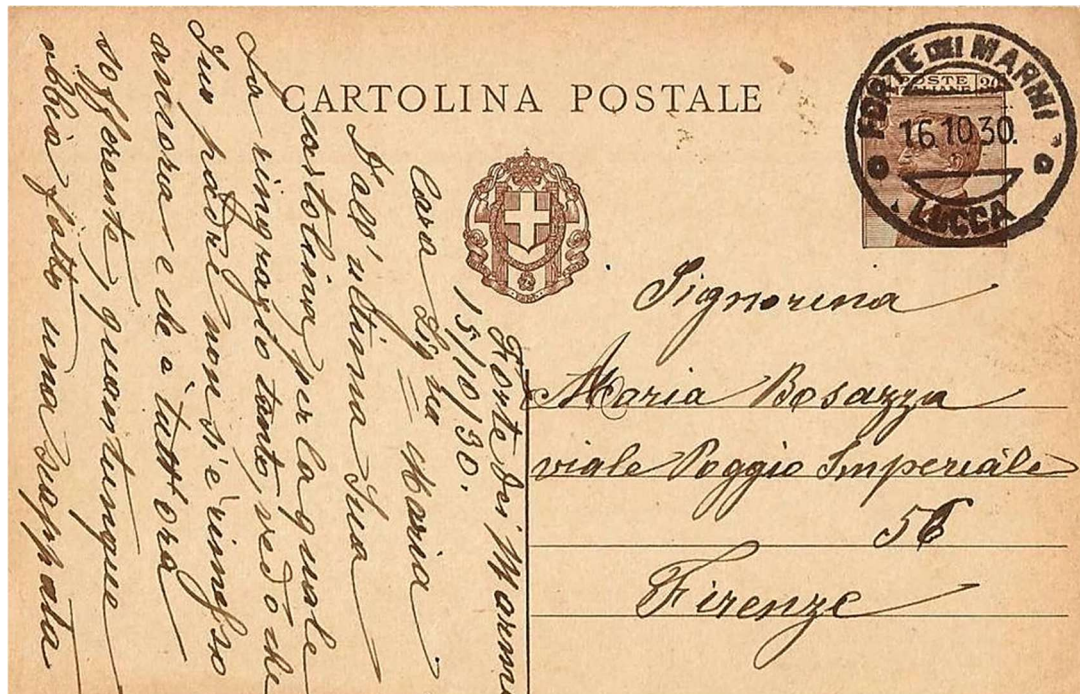 CARTOLINA POSTALE
POSTE
ITALIANE
FORTE DEI MARMI
16.10.30.
LUCCA
Signorina
Maria Bosazza
viale Poggio Imperiale
56
Firenze
Forte dei Marmi
15/10/30.
Cara Sig ra Maria
Dall'ultima Sua
cartolina per la quale
La ringrazio tanto, vedo che
Suo padre non s'è rimesso
ancora e che è tutt'ora
sofferente, quantunque
abbia fatto una